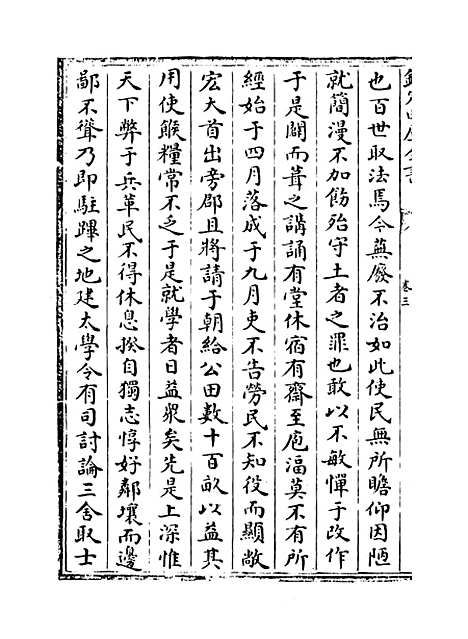 欽定四庫全書
卷三
也百世取法焉今蕪廢不治如此使民無所瞻仰因陋
就簡漫不加飭殆守土者之罪也敢以不敏憚于改作
于是闢而葺之講誦有堂休宿有齋至庖湢莫不有所
經始于四月落成于九月吏不告勞民不知役而顯敞
宏大首出旁郡且將請于朝給公田數十百畝以益其
用使餱糧常不乏于是就學者日益衆矣先是上深惟
天下弊于兵革民不得休息揆自獨志惇好鄰壤而邊
鄙不聳乃即駐蹕之地建太學令有司討論三舍取士